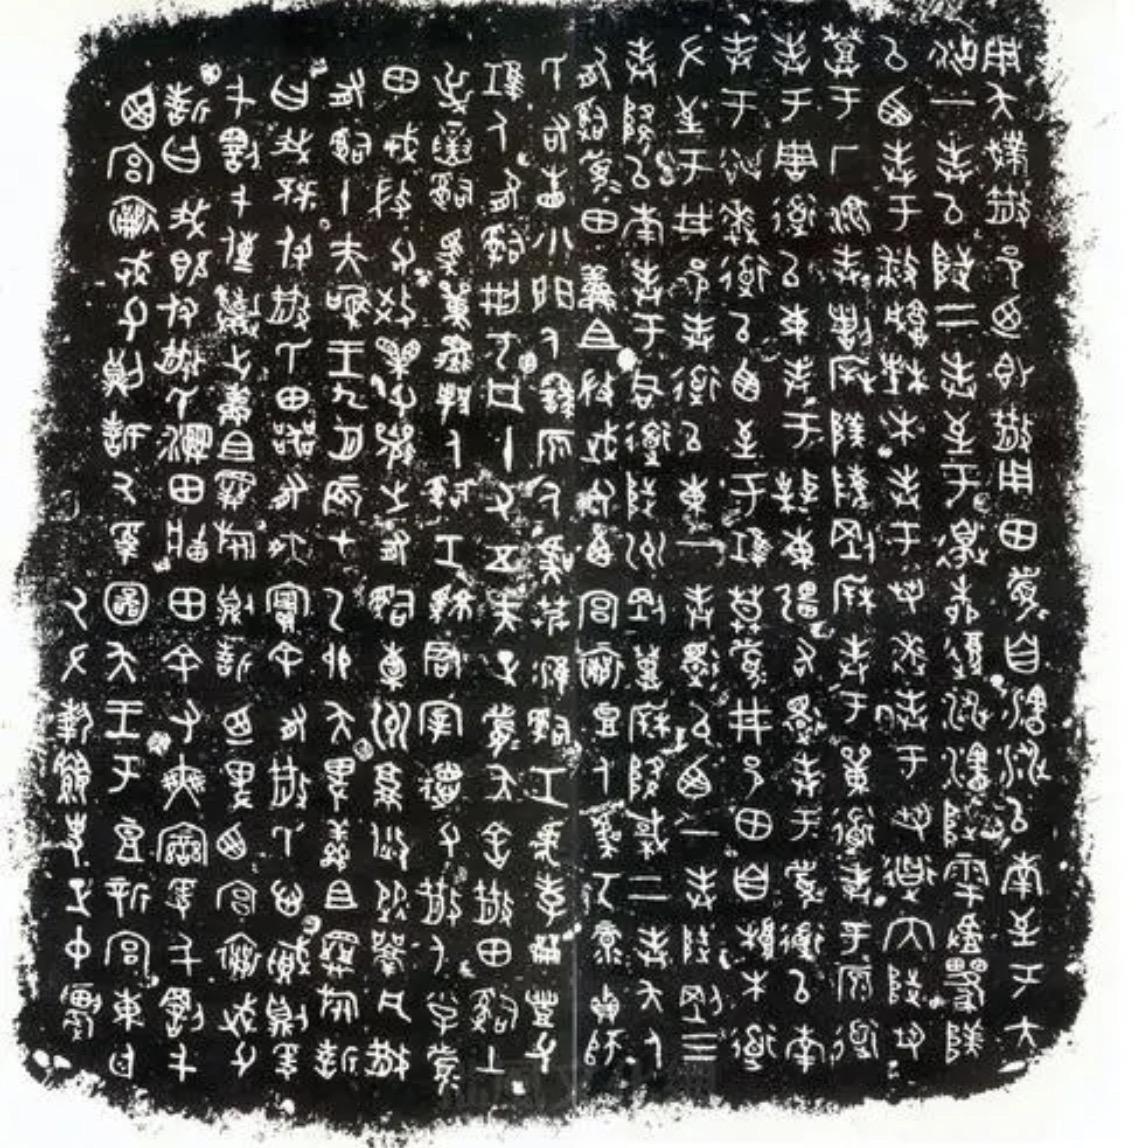 用夨撲散邑乃即散用田眉自瀗涉以南至于大
沽一封以陟二封至于邊柳復涉瀗陟雩
以西封于播城楮木封于芻逨封于芻道内陟芻
登于厂湶封諸㭕陵剛㭕封于單道封于原道
封于周道以東封于東彊右還封于履道以南
封于逨道以西至于莫履井邑田自根木道
左至于井邑封道以東一封還以西一封陟剛三
封降以南封于同道陟州剛登㭕降棫二封夨人
有嗣履田鮮且微武父西宮襄豆人虞丂彔貞師
氏右眚小門人繇原人虞艿淮嗣工虎孝龠豐父
人有嗣刑丂凡十又五夫正履夨舍散田嗣土
逆寅嗣馬單人嗣工君宰德父散人小子履
田戎微父效櫐父襄之有嗣橐州焂從凡散
有嗣十夫唯王九月辰在乙卯夨卑鮮且旅誓
曰我既付散氏田器有爽實余有散氏心賊則爰
千罰千傳棄之鮮且旅則誓乃卑西宮襄武父
誓曰我既付散氏濕田牆田余又爽變爰千罰千
西宮襄武父則誓厥受圖夨王于豆新宮東廷
厥左執繇史正中農